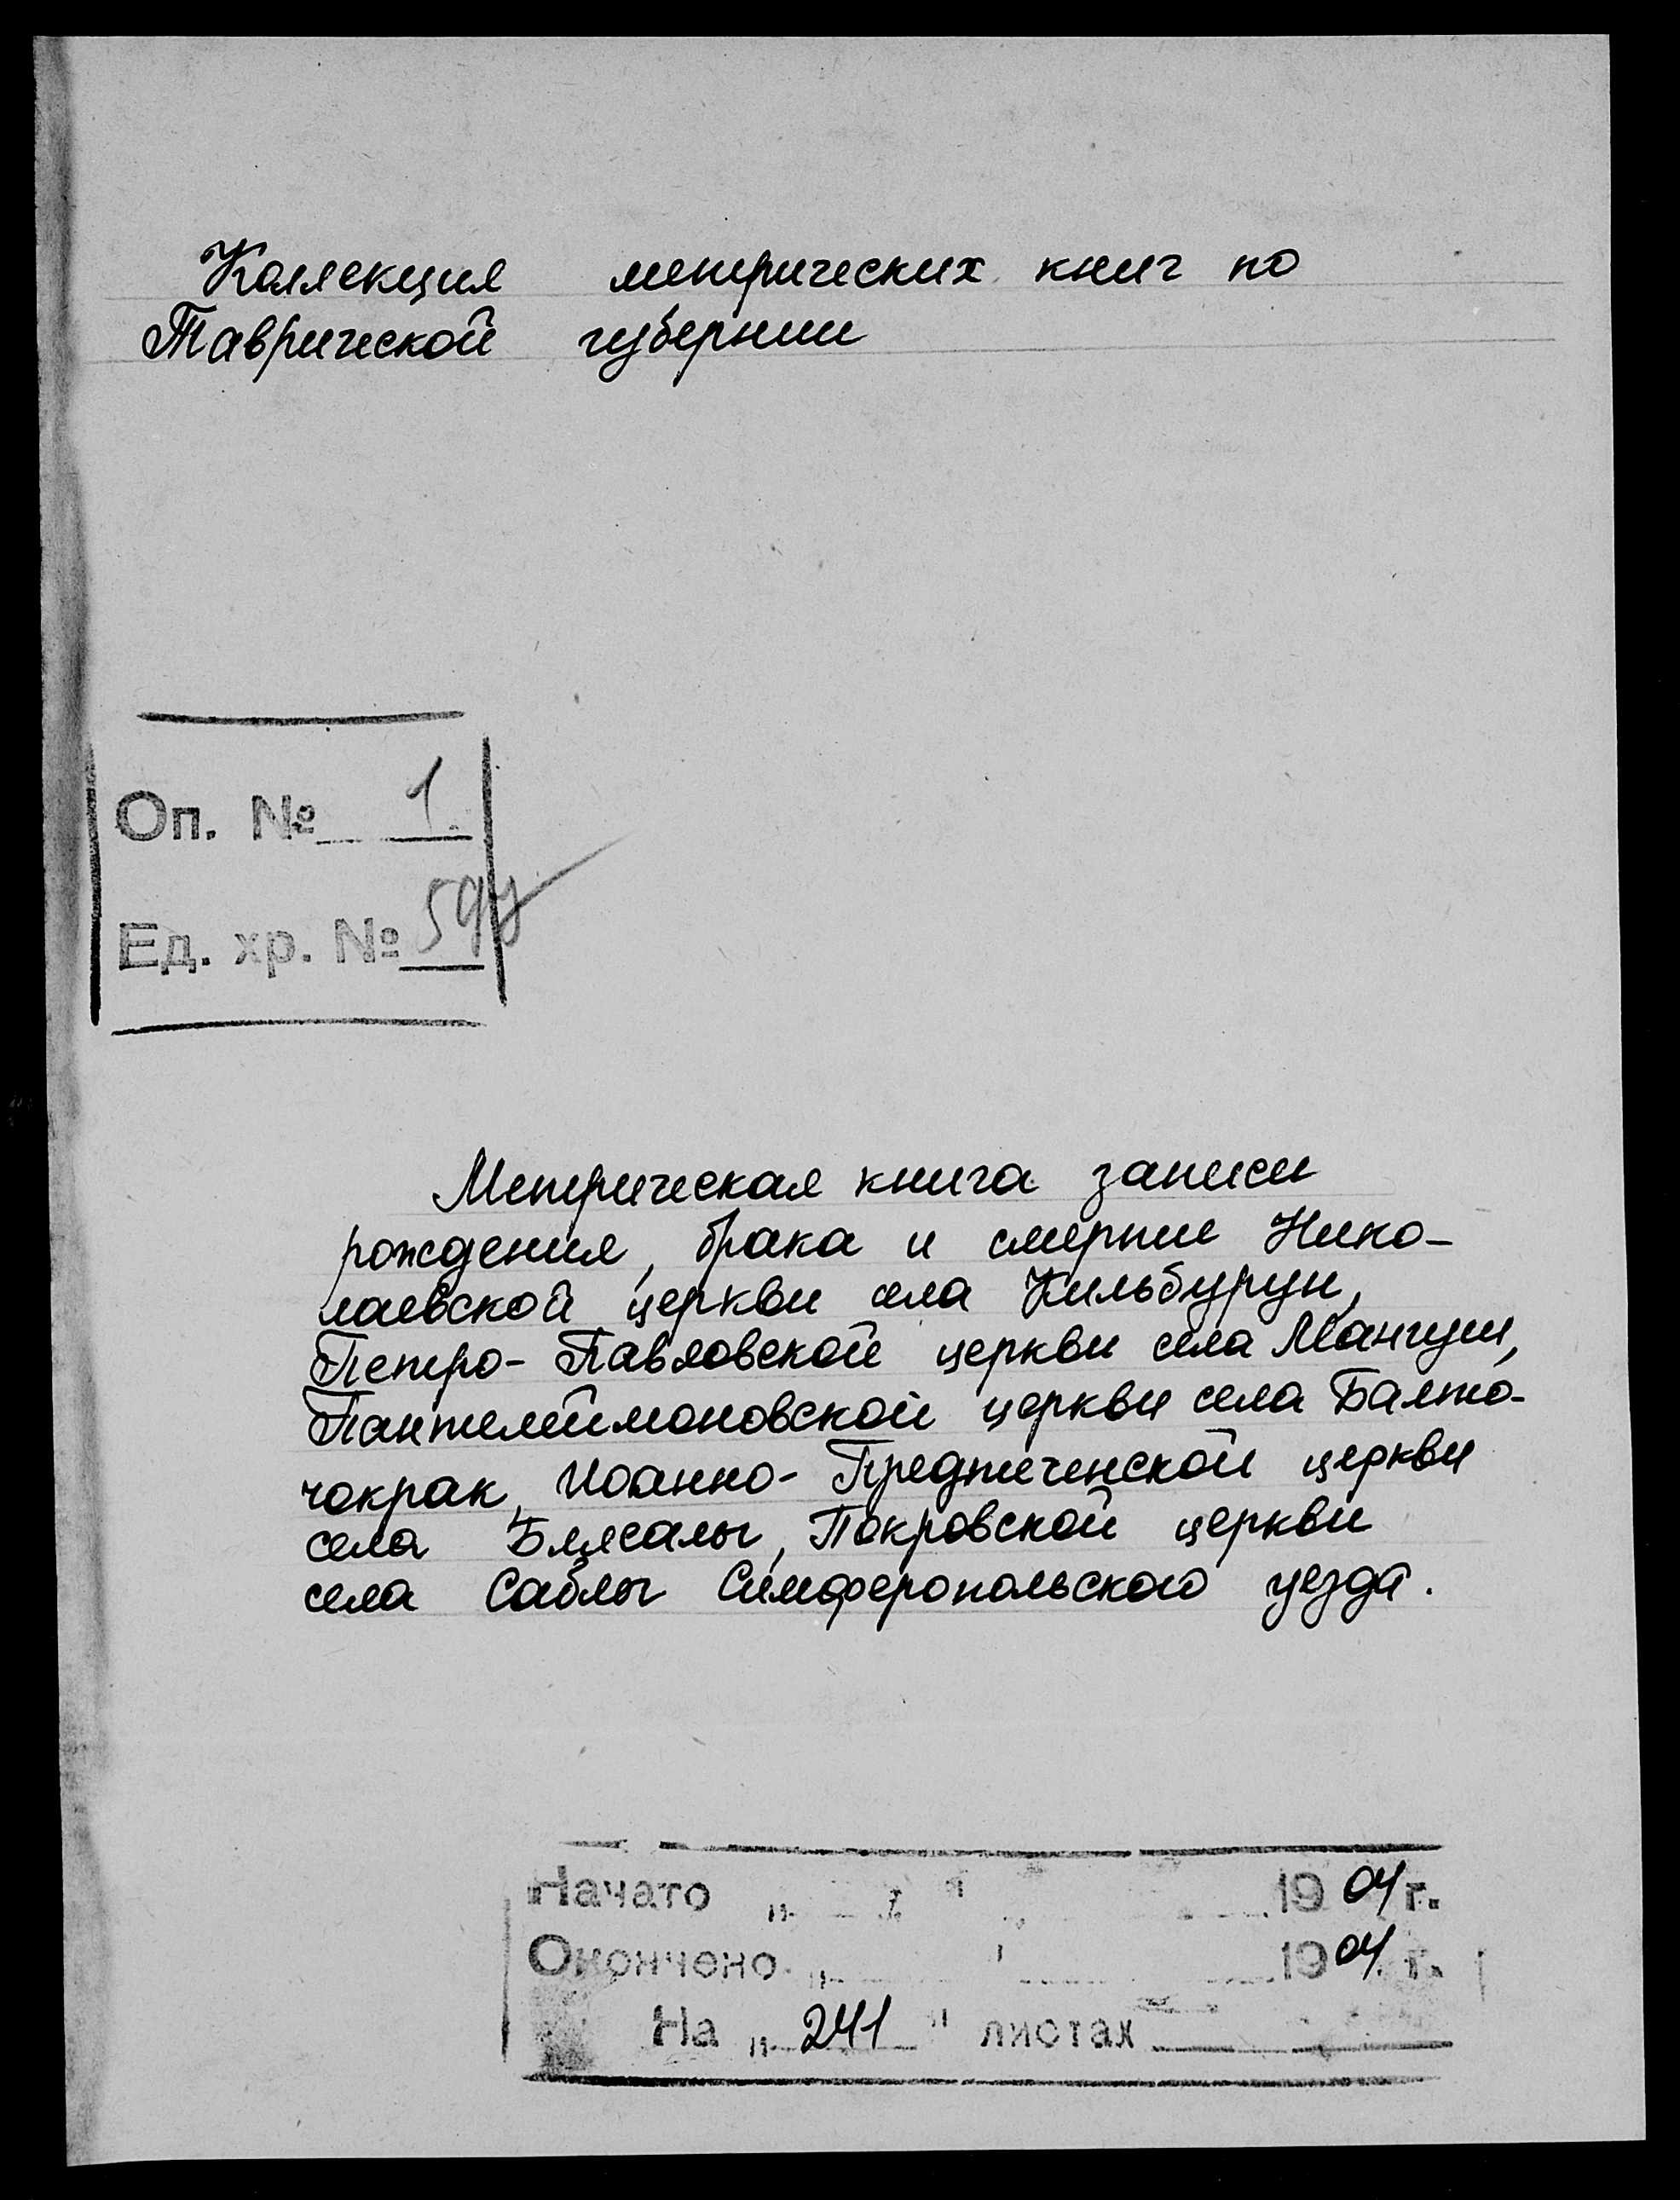 Коллекция метрических книг по
Таврической губернии
Оп. № 1
Ед. хр. №
Метрическая книга записи
рождения, брака и смерти Нико-
лаевской церкви села Кильбурун,
Петро-Павловской церкви села Мангуш,
Пантелеймоновской церкви села Балта-
чокрак, Иоанно-Предтеченской церкви
села Биясалы, Покровской церкви
села Саблы Симферопольского уезда.
Начато " " 1904 г.
Окончено " 1904 г.
На " 241 " листах